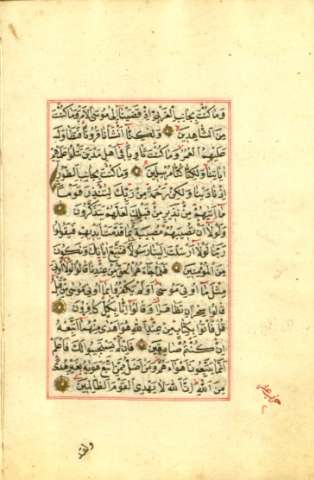 وَمَا كُنْتَ بِجَانِبِ الْغَرْبِيِّ اِذْ قَضَيْنَا اِلٰى مُوسَى الْاَمْرَ وَمَا كُنْتَ
مِنَ الشَّاهِدِينَ وَلٰكِنَّا اَنْشَأْنَا قُرُونًا فَتَطَاوَلَ
عَلَيْهِمُ الْعُمُرُ وَمَا كُنْتَ ثَاوِيًا فِى اَهْلِ مَدْيَنَ تَتْلُوا عَلَيْهِمْ
اٰيَاتِنَا وَلٰكِنَّا كُنَّا مُرْسِلِينَ وَمَا كُنْتَ بِجَانِبِ الطُّورِ
اِذْ نَادَيْنَا وَلٰكِنْ رَحْمَةً مِنْ رَبِّكَ لِتُنْذِرَ قَوْمًا
مَا اَتٰيهُمْ مِنْ نَذِيرٍ مِنْ قَبْلِكَ لَعَلَّهُمْ يَتَذَكَّرُونَ
وَلَوْلَا اَنْ تُصِيبَهُمْ مُصِيبَةٌ بِمَا قَدَّمَتْ اَيْدِيهِمْ فَيَقُولُوا
رَبَّنَا لَوْلَا اَرْسَلْتَ اِلَيْنَا رَسُولًا فَنَتَّبِعَ اٰيَاتِكَ وَنَكُونَ
مِنَ الْمُؤْمِنِينَ فَلَمَّا جَاءَهُمُ الْحَقُّ مِنْ عِنْدِنَا قَالُوا لَوْلَا اُوتِىَ
مِثْلَ مَا اُوتِىَ مُوسٰى اَوَلَمْ يَكْفُرُوا بِمَا اُوتِىَ مُوسٰى مِنْ قَبْلُ
قَالُوا سِحْرَانِ تَظَاهَرَا وَقَالُوا اِنَّا بِكُلٍّ كَافِرُونَ
قُلْ فَأْتُوا بِكِتَابٍ مِنْ عِنْدِ اللّٰهِ هُوَ اَهْدٰى مِنْهُمَا اَتَّبِعْهُ
اِنْ كُنْتُمْ صَادِقِينَ فَاِنْ لَمْ يَسْتَجِيبُوا لَكَ فَاعْلَمْ
اَنَّمَا يَتَّبِعُونَ اَهْوَاءَهُمْ وَمَنْ اَضَلُّ مِمَّنِ اتَّبَعَ هَوٰيهُ بِغَيْرِ هُدًى
مِنَ اللّٰهِ اِنَّ اللّٰهَ لَا يَهْدِى الْقَوْمَ الظَّالِمِينَ
ولقد